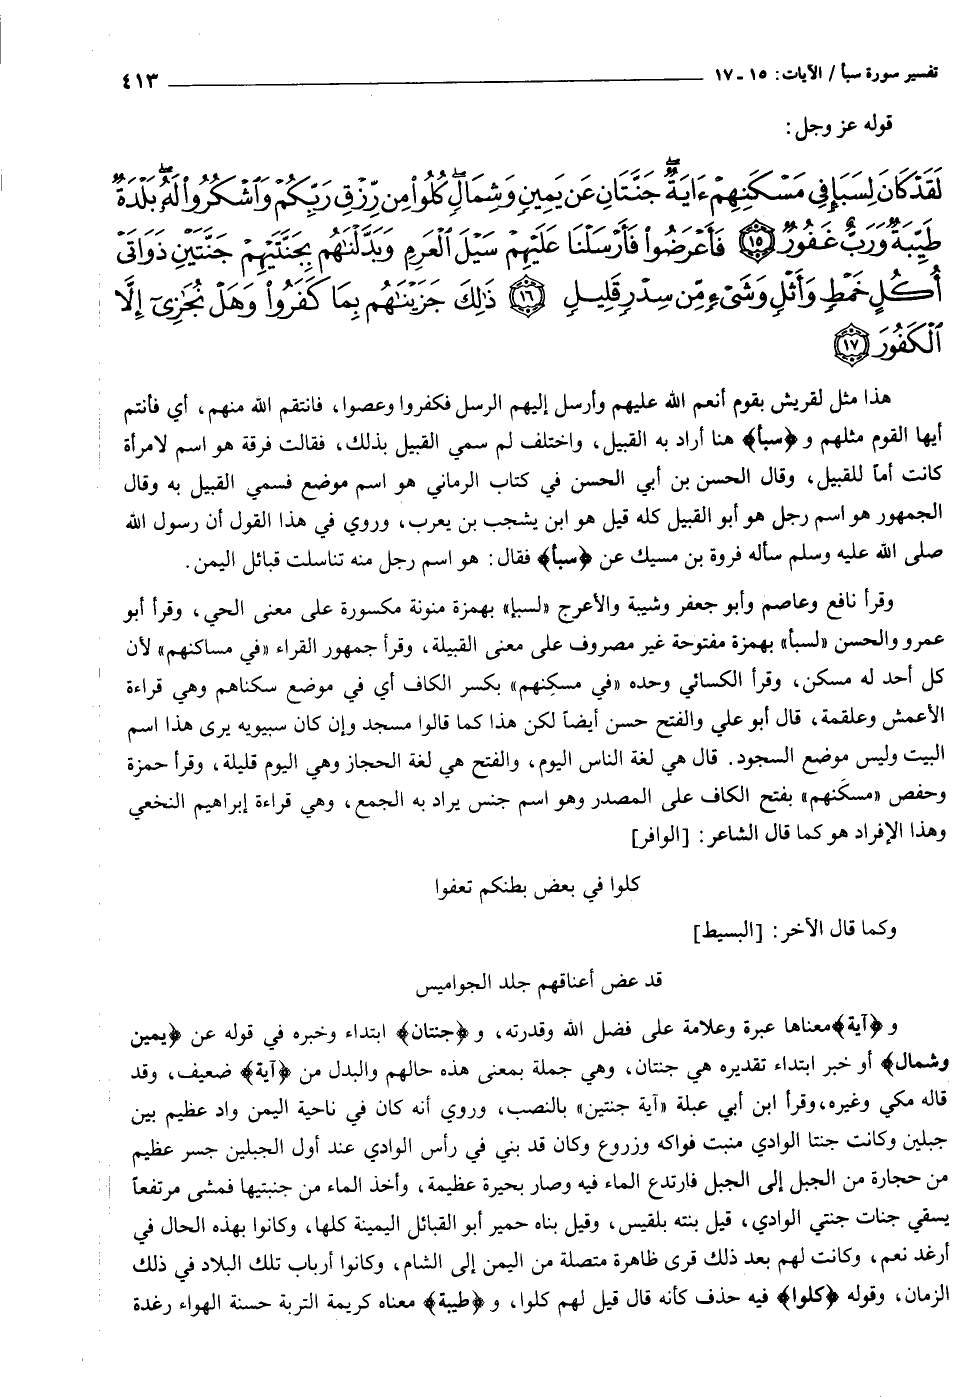 تفسير سورة سبأ / الآيات: ١٥ - ١٧ ٤١٣
قوله عز وجل:
لَقَدْ كَانَ لِسَبَإٍ فِي مَسْكَنِهِمْ ءَايَةٌ جَنَّتَانِ عَن يَمِينٍ وَشِمَالٍ كُلُوا مِن رِّزْقِ رَبِّكُمْ وَاشْكُرُوا لَهُ بَلْدَةٌ
طَيِّبَةٌ وَرَبٌّ غَفُورٌ ﴿١٥﴾ فَأَعْرَضُوا فَأَرْسَلْنَا عَلَيْهِمْ سَيْلَ الْعَرِمِ وَبَدَّلْنَاهُم بِجَنَّتَيْهِمْ جَنَّتَيْنِ ذَوَاتَىْ
أُكُلٍ خَمْطٍ وَأَثْلٍ وَشَىْءٍ مِّن سِدْرٍ قَلِيلٍ ﴿١٦﴾ ذَٰلِكَ جَزَيْنَاهُم بِمَا كَفَرُوا وَهَلْ نُجَازِي إِلَّا
الْكَفُورَ ﴿١٧﴾
هذا مثل لقريش بقوم أنعم الله عليهم وأرسل إليهم الرسل فكفروا وعصوا، فانتقم الله منهم، أي فأنتم
أيها القوم مثلهم و ﴿سبأ﴾ هنا أراد به القبيل، واختلف لم سمي القبيل بذلك، فقالت فرقة هو اسم لامرأة
كانت أماً للقبيل، وقال الحسن بن أبي الحسن في كتاب الرماني هو اسم موضع فسمي القبيل به وقال
الجمهور هو اسم رجل هو أبو القبيل كله قيل هو ابن يشجب بن يعرب، وروي في هذا القول أن رسول الله
صلى الله عليه وسلم سأله فروة بن مسيك عن ﴿سبأ﴾ فقال: هو اسم رجل منه تناسلت قبائل اليمن.
وقرأ نافع وعاصم وأبو جعفر وشيبة والأعرج «لسبإ» بهمزة منونة مكسورة على معنى الحي، وقرأ أبو
عمرو والحسن «لسبأ» بهمزة مفتوحة غير مصروف على معنى القبيلة، وقرأ جمهور القراء «في مساكنهم» لأن
كل أحد له مسكن، وقرأ الكسائي وحده «في مسكِنهم» بكسر الكاف أي في موضع سكناهم وهي قراءة
الأعمش وعلقمة، قال أبو علي والفتح حسن أيضاً لكن هذا كما قالوا مسجد وإن كان سيبويه يرى هذا اسم
البيت وليس موضع السجود. قال هي لغة الناس اليوم، والفتح هي لغة الحجاز وهي اليوم قليلة، وقرأ حمزة
وحفص «مسكَنهم» بفتح الكاف على المصدر وهو اسم جنس يراد به الجمع، وهي قراءة إبراهيم النخعي
وهذا الإفراد هو كما قال الشاعر: [الوافر]
كلوا في بعض بطنكم تعفوا
وكما قال الآخر: [البسيط]
قد عض أعناقهم جلد الجواميس
و ﴿آية﴾معناها عبرة وعلامة على فضل الله وقدرته، و ﴿جنتان﴾ ابتداء وخبره في قوله عن ﴿يمين
وشمال﴾ أو خبر ابتداء تقديره هي جنتان، وهي جملة بمعنى هذه حالهم والبدل من ﴿آية﴾ ضعيف، وقد
قاله مكي وغيره،وقرأ ابن أبي عبلة «آية جنتين» بالنصب، وروي أنه كان في ناحية اليمن واد عظيم بين
جبلين وكانت جنتا الوادي منبت فواكه وزروع وكان قد بني في رأس الوادي عند أول الجبلين جسر عظيم
من حجارة من الجبل إلى الجبل فارتدع الماء فيه وصار بحيرة عظيمة، وأخذ الماء من جنبتيها فمشى مرتفعاً
يسقي جنات جنتي الوادي، قيل بنته بلقيس، وقيل بناه حمير أبو القبائل اليمينة كلها، وكانوا بهذه الحال في
أرغد نعم، وكانت لهم بعد ذلك قرى ظاهرة متصلة من اليمن إلى الشام، وكانوا أرباب تلك البلاد في ذلك
الزمان، وقوله ﴿كلوا﴾ فيه حذف كأنه قال قيل لهم كلوا، و ﴿طيبة﴾ معناه كريمة التربة حسنة الهواء رغدة